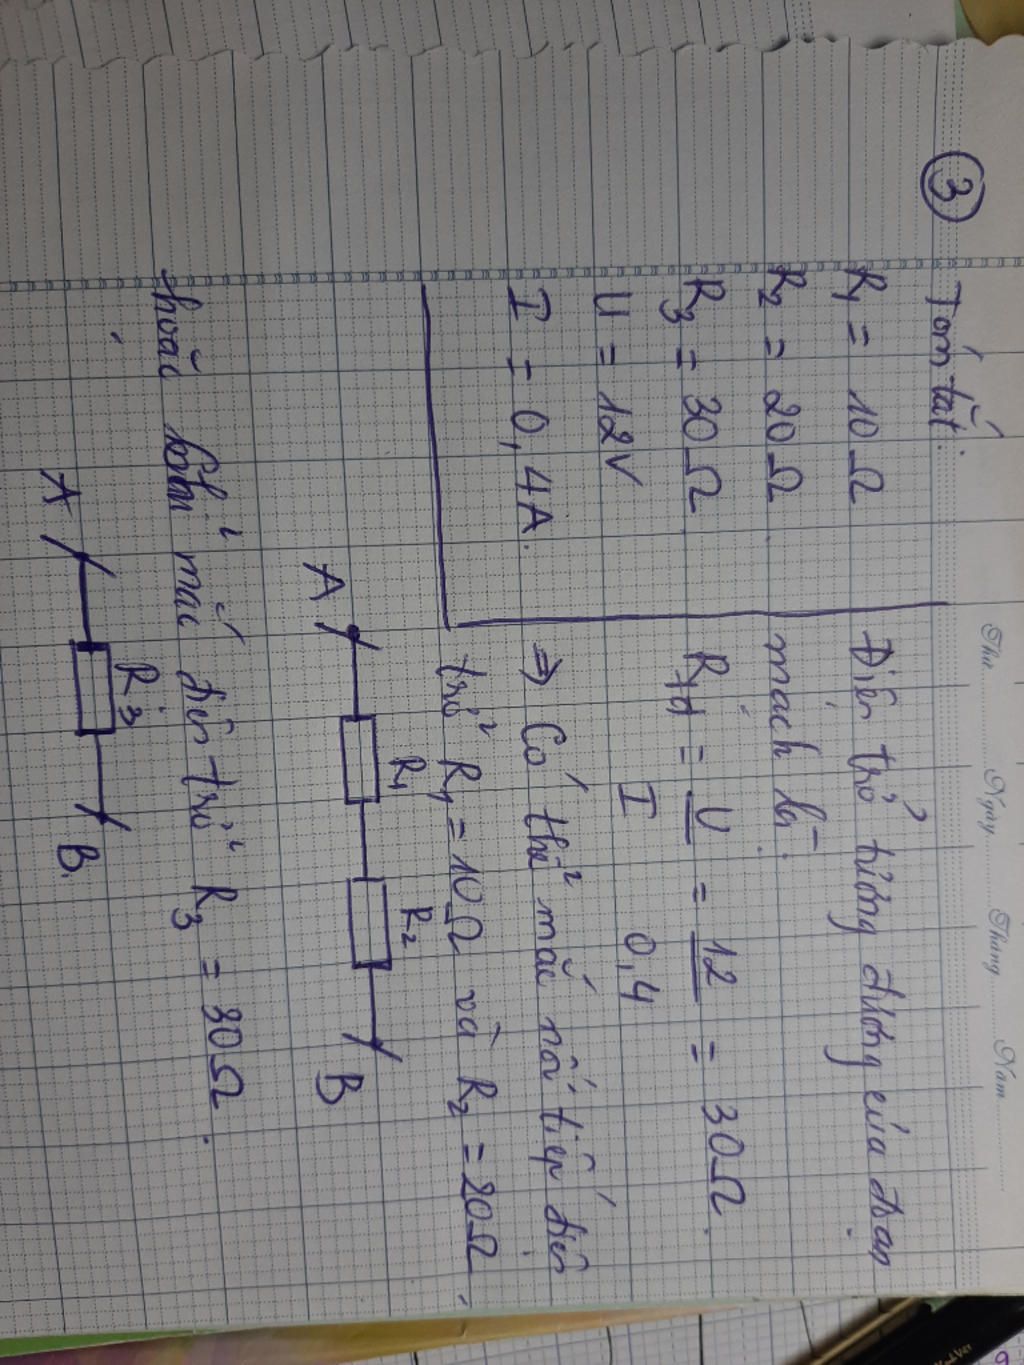 Thứ ........ Ngày ........ Tháng ........ Năm ........
③
Tóm tắt:
R₁ = 10Ω
R₂ = 20Ω
R₃ = 30Ω
U = 12V
I = 0,4A.
Điện trở tương đương của đoạn
mạch là:
Rtđ = U/I = 12/0,4 = 30Ω.
⇒ Có thể mắc nối tiếp điện
trở R₁ = 10Ω và R₂ = 20Ω
A R₁ R₂ B
hoặc mắc điện trở R₃ = 30Ω.
A R₃ B